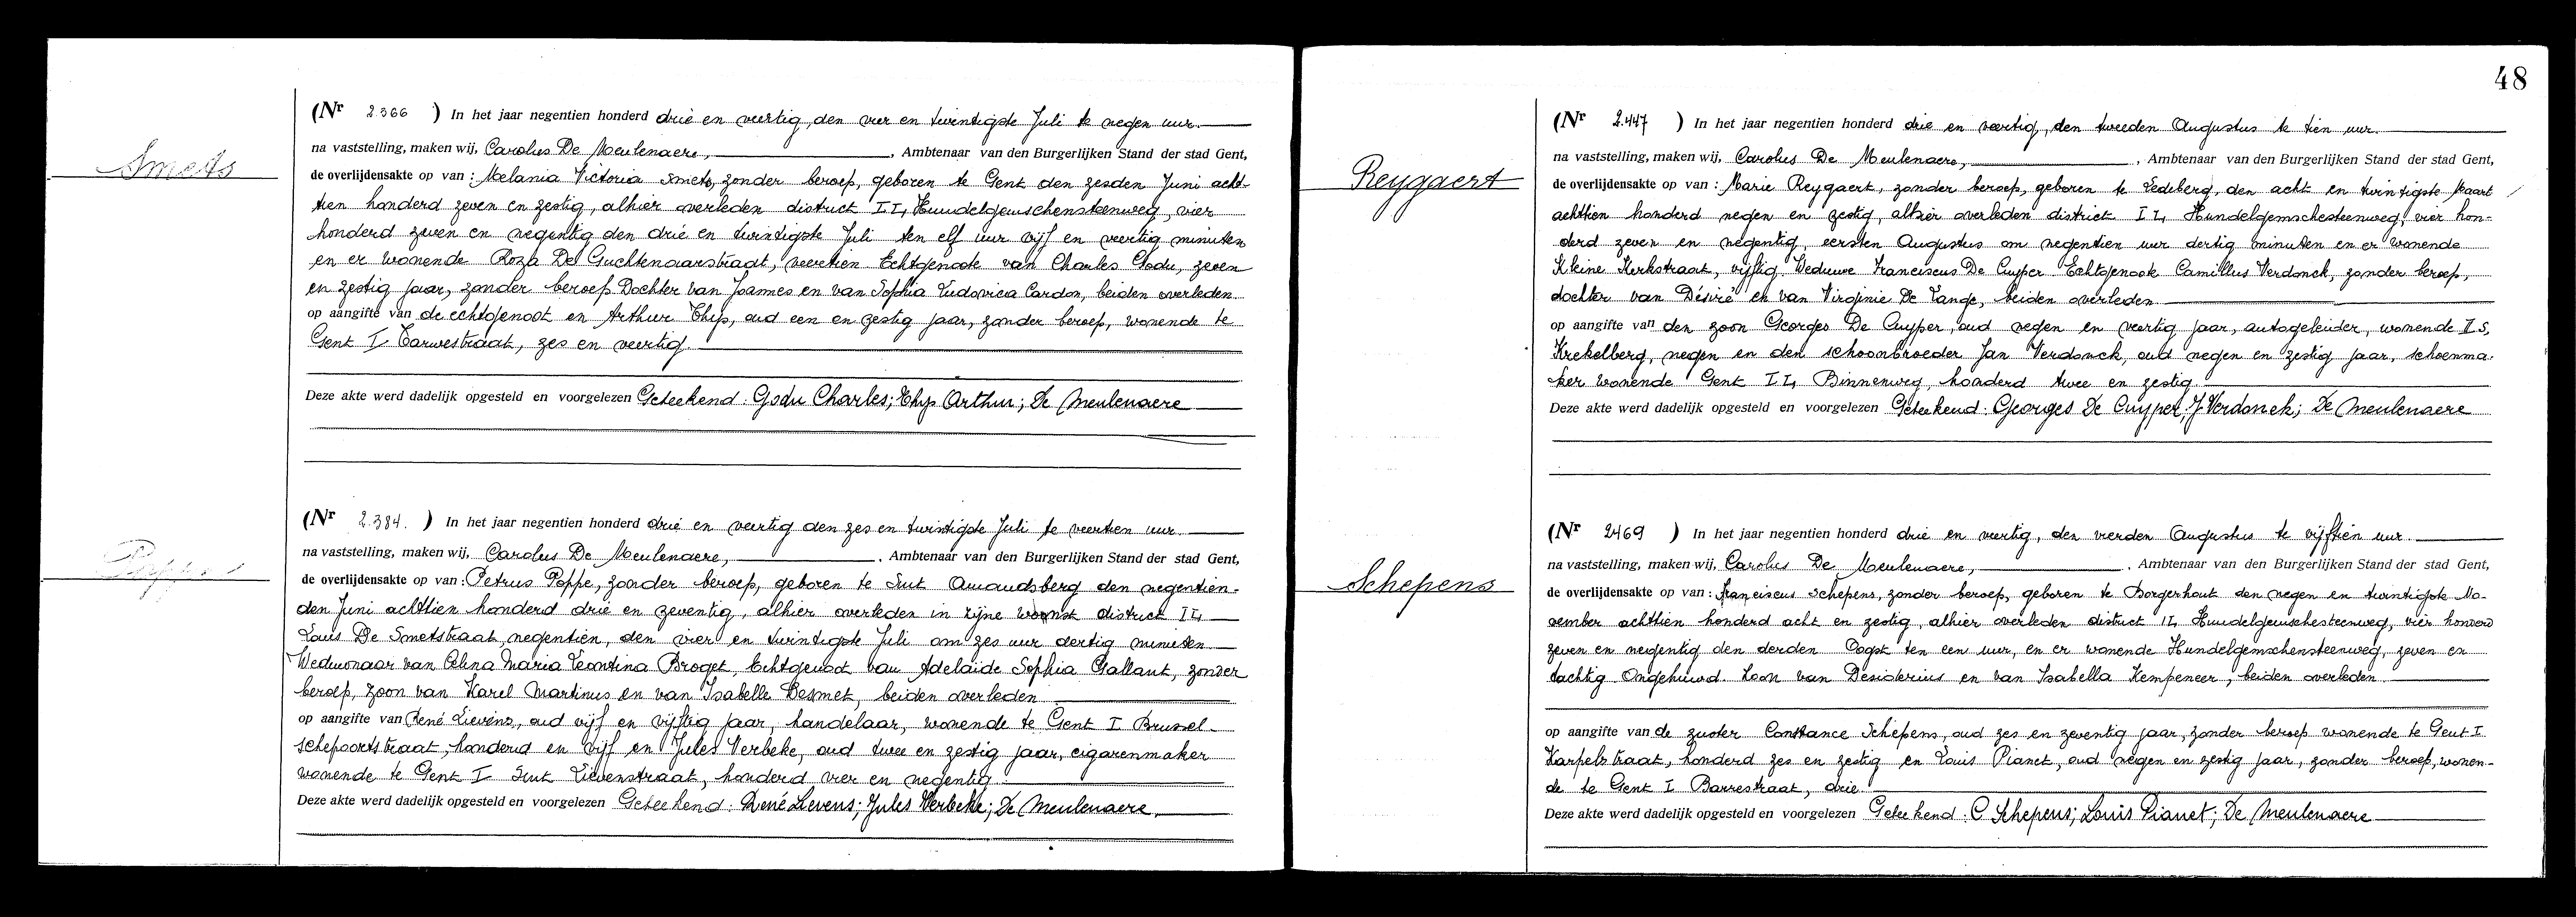 Smets
(Nr 2.366 ) In het jaar negentien honderd drie en veertig, den vier en twintigste Juli te negen uur.
na vaststelling, maken wij, Carolus De Meulenaere, , Ambtenaar van den Burgerlijken Stand der stad Gent,
de overlijdensakte op van : Melania Victoria Smets, zonder beroep, geboren te Gent den zesden Juni acht-
tien honderd zeven en zestig, alhier overleden district II, Hundelgemschensteenweg, vier
honderd zeven en negentig den drie en twintigste Juli ten elf uur vijf en veertig minuten
en er wonende Roza De Guchtenaarstraat, veertien Echtgenoote van Charles Godu, zeven
en zestig jaar, zonder beroep. Dochter van Joannes en van Sophia Ludovica Cardon, beiden overleden.
op aangifte van de echtgenoot en Arthur Thys, oud een en zestig jaar, zonder beroep, wonende te
Gent I Tarwestraat, zes en veertig.
Deze akte werd dadelijk opgesteld en voorgelezen Geteekend : Godu Charles; Thys Arthur; De Meulenaere
Poppe
(Nr 2.384. ) In het jaar negentien honderd drie en veertig den zes en twintigste Juli te veertien uur.
na vaststelling, maken wij, Carolus De Meulenaere, . Ambtenaar van den Burgerlijken Stand der stad Gent,
de overlijdensakte op van : Petrus Poppe, zonder beroep, geboren te Sint Amandsberg den negentien-
den Juni achttien honderd drie en zeventig, alhier overleden in zijne woonst district II,
Louis De Smetstraat, negentien, den vier en twintigste Juli om zes uur dertig minuten
Weduwnaar van Celina Maria Leontina Broget, Echtgenoot van Adelaide Sophia Gallant, zonder
beroep, zoon van Karel Martinus en van Isabelle Desmet, beiden overleden
op aangifte van René Lievens, oud vijf en vijftig jaar, handelaar, wonende te Gent I Brussel-
schepoortstraat, honderd en vijf en Jules Verbeke, oud twee en zestig jaar, cigarenmaker
wonende te Gent I Sint Lievenstraat, honderd vier en negentig.
Deze akte werd dadelijk opgesteld en voorgelezen Geteekend : René Lievens; Jules Verbeke; De Meulenaere.
48
Reygaert
(Nr 2.447 ) In het jaar negentien honderd drie en veertig, den tweeden Augustus te tien uur.
na vaststelling, maken wij, Carolus De Meulenaere, , Ambtenaar van den Burgerlijken Stand der stad Gent,
de overlijdensakte op van : Marie Reygaert, zonder beroep, geboren te Ledeberg, den acht en twintigste Maart
achttien honderd negen en zestig, alhier overleden district II, Hundelgemschesteenweg, vier hon-
derd zeven en negentig, eersten Augustus om negentien uur dertig minuten en er wonende
Kleine Kerkstraat, vijftig. Weduwe Franciscus De Cuyper Echtgenoote Camillus Verdonck, zonder beroep,
dochter van Désiré en van Virginie De Lange, beiden overleden
op aangifte van den zoon Georges De Cuyper, oud negen en veertig jaar, autogeleider, wonende I S.
Krekelberg, negen en den schoonbroeder Jan Verdonck, oud negen en zestig jaar, schoenma-
ker wonende Gent II, Binnenweg, honderd twee en zestig.
Deze akte werd dadelijk opgesteld en voorgelezen Geteekend : Georges De Cuyper; J Verdonck; De Meulenaere
Schepens
(Nr 2469 ) In het jaar negentien honderd drie en veertig, den vierden Augustus te vijftien uur.
na vaststelling, maken wij, Carolus De Meulenaere, . Ambtenaar van den Burgerlijken Stand der stad Gent,
de overlijdensakte op van : Franciscus Schepens, zonder beroep, geboren te Borgerhout den negen en twintigste No-
vember achttien honderd acht en zestig, alhier overleden district II, Hundelgemschesteenweg, vier honderd
zeven en negentig den derden Oogst ten een uur, en er wonende Hundelgemschensteenweg, zeven en
tachtig. Ongehuwd. Zoon van Desiderius en van Isabella Kempeneer, beiden overleden.
op aangifte van de zuster Constance Schepens, oud zes en zeventig jaar, zonder beroep wonende te Gent I
Karpelstraat, honderd zes en zestig en Louis Pianet, oud negen en zestig jaar, zonder beroep, wonen-
de te Gent I Barrestraat, drie.
Deze akte werd dadelijk opgesteld en voorgelezen Geteekend : C Schepens; Louis Pianet; De Meulenaere